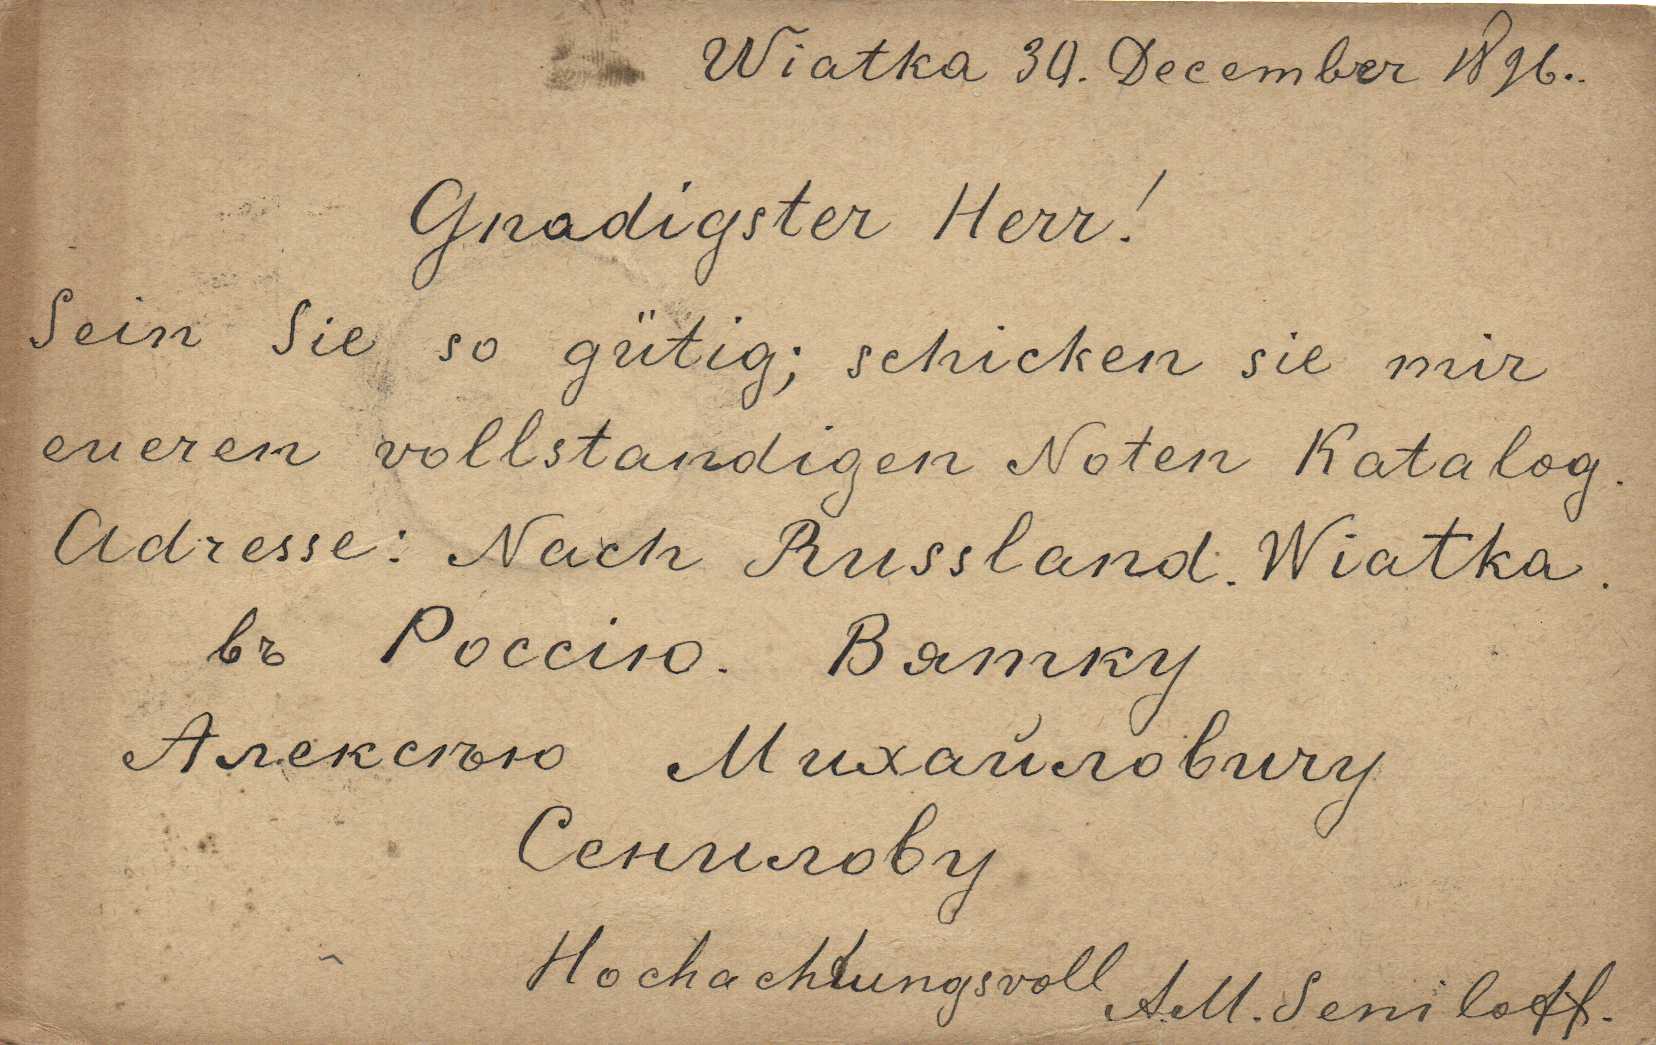 Wiatka 30. December 1896.
Gnadigster Herr!
Sein Sie so gütig; schicken sie mir
eueren vollstandigen Noten Katalog.
Adresse: Nach Russland. Wiatka.
въ Россію. Вятку
Алексѣю Михайловичу
Сенилову
Hochachtungsvoll A.M. Seniloff.